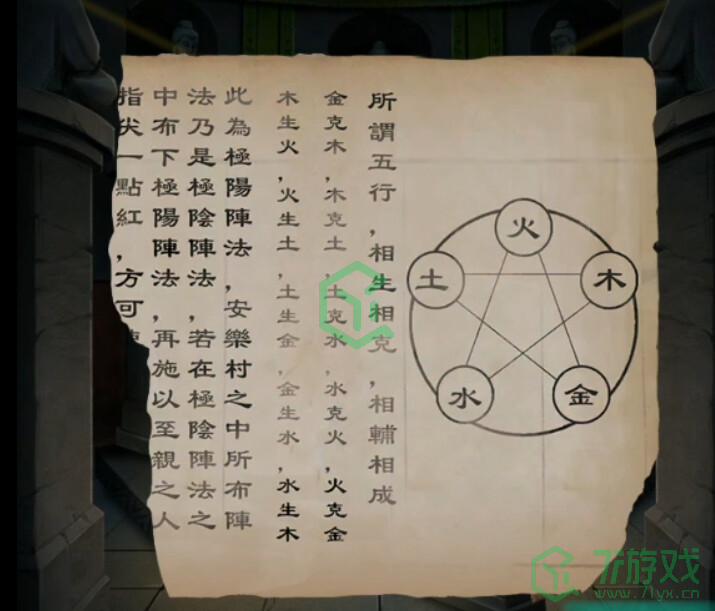 所謂五行，相生相克，相輔相成
金克木，木克土，土克水，水克火，火克金
木生火，火生土，土生金，金生水，水生木
此為極陽陣法，安樂村之中所布陣
法乃是極陰陣法，若在極陰陣法之
中布下極陽陣法，再施以至親之人
指尖一點紅，方可
火
土
木
水
金
71游戏
www.71yx.cn